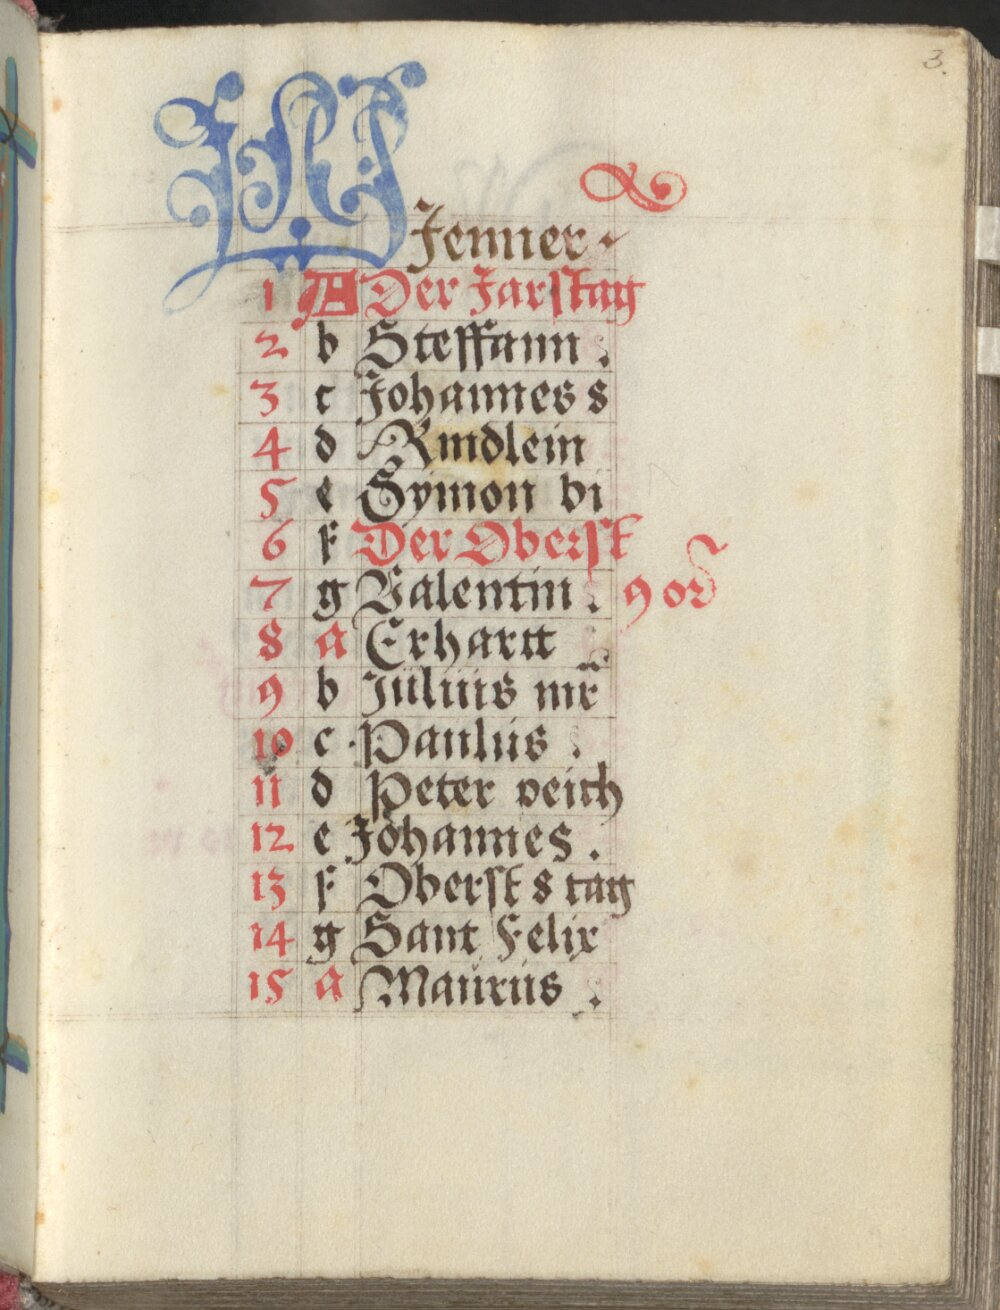 3.
KL
Jenner
1 A Der Jarstag
2 b Steffann .
3 c Johannes s
4 d Kindlein
5 e Symon bi
6 f Der Oberst
7 g Valentin . 9 or
8 a Erhartt
9 b Julius mr
10 c Paulus .
11 d Peter peich
12 e Johannes .
13 f Oberst s tag
14 g Sant Felix
15 a Maurus .